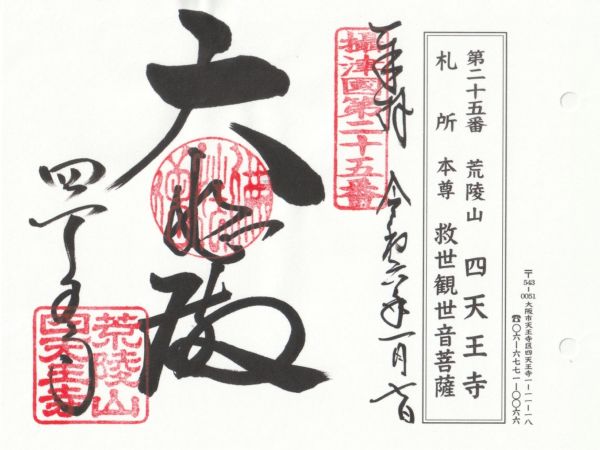 〒543-0051 大阪市天王寺区四天王寺一ー一一ー一八
☎〇六ー六七七一ー〇〇六六
第二十五番 荒陵山 四天王寺
札所本尊 救世観世音菩薩
奉拝 令和六年一月七日
攝津國第二十五番
大悲殿
四天王寺
荒陵山
四天王寺